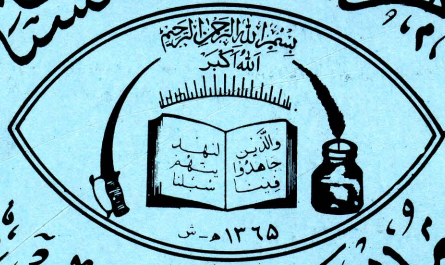 بِسْمِ اللهِ الرَّحْمٰنِ الرَّحِيْمِ
اللهُ اَكْبَر
والَّذين
جَاهَدُوا
فِينَا
لنهد
ينهم
سبلنا
۱۳۶۵ هـ - ش